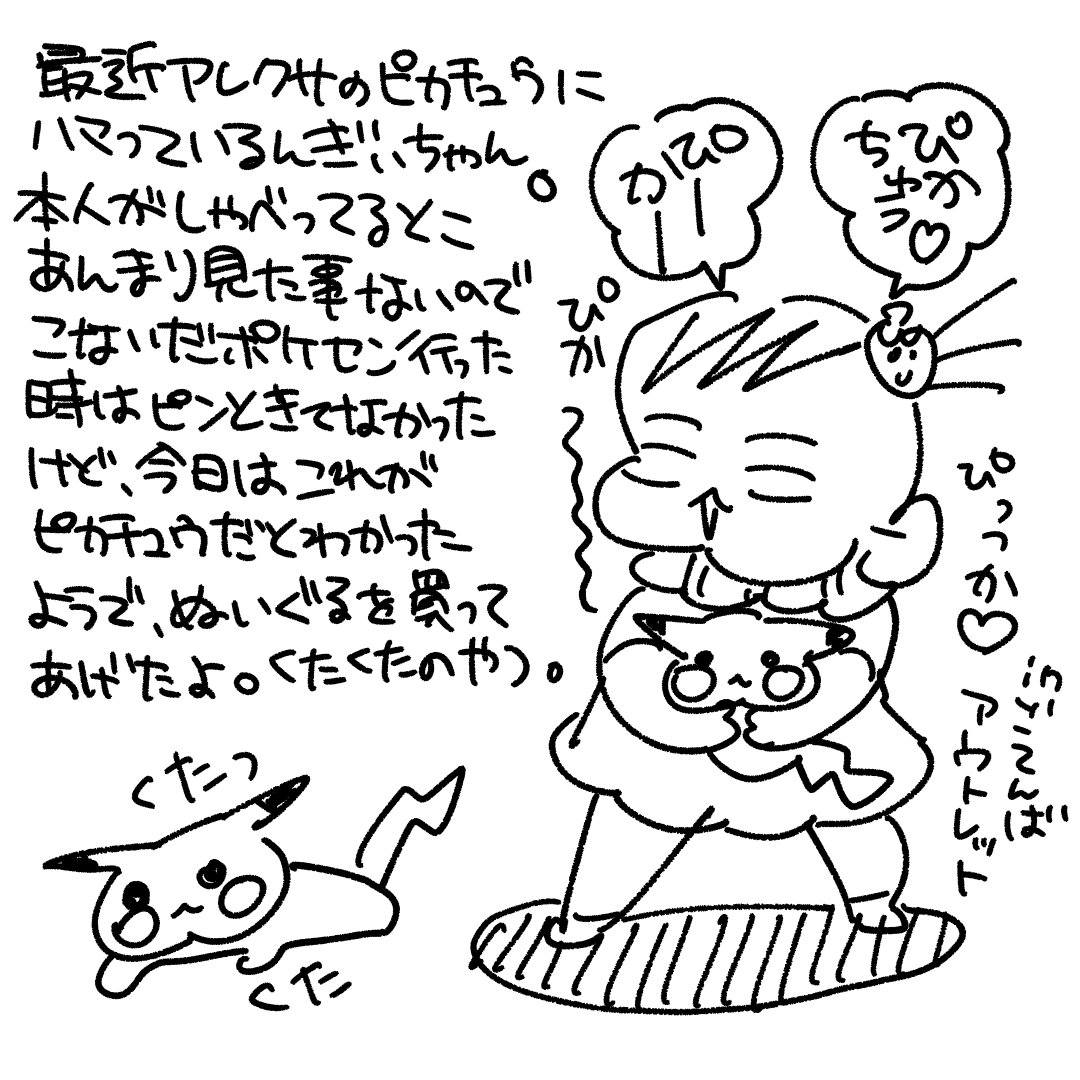 最近アレクサのピカチュウに
ハマっているんぎぃちゃん。
本人がしゃべってるとこ
あんまり見た事ないので
こないだポケセン行った
時はピンときてなかった
けど、今日はこれが
ピカチュウだとわかった
ようで、ぬいぐるを買って
あげたよ。くたくたのやつ。
ぴーかー
ぴかちゅう♡
ぴか
ぴっっか♡
ごてんば
アウトレット
くたっ
くた